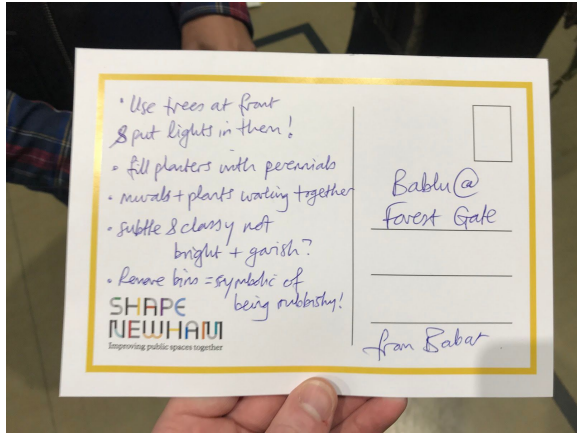 • Use trees at front
& put lights in them!
• fill planters with perennials
• murals + plants working together
• subtle & classy not
bright + garish?
• Remove bins = symbolic of
being rubbishy!
SHAPE
NEWHAM
Improving public spaces together
Bablu @
Forest Gate
from Babar